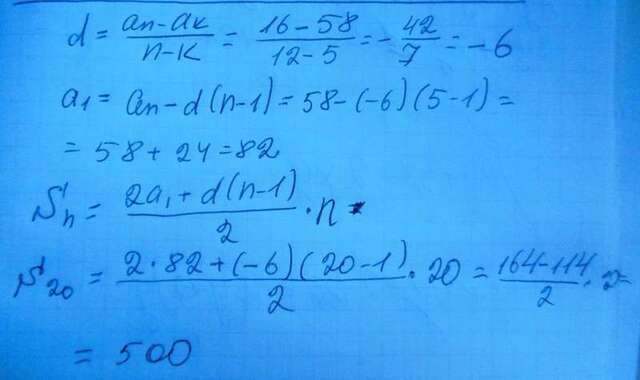 d = an-aк/n-к = 16-58/12-5 = -42/7 = -6
a₁ = an-d(n-1) = 58-(-6)(5-1) =
= 58+24=82
Sn = 2a₁+d(n-1)/2 · n
S20 = 2·82+(-6)(20-1)/2 · 20 = 164-114/2 ·
= 500